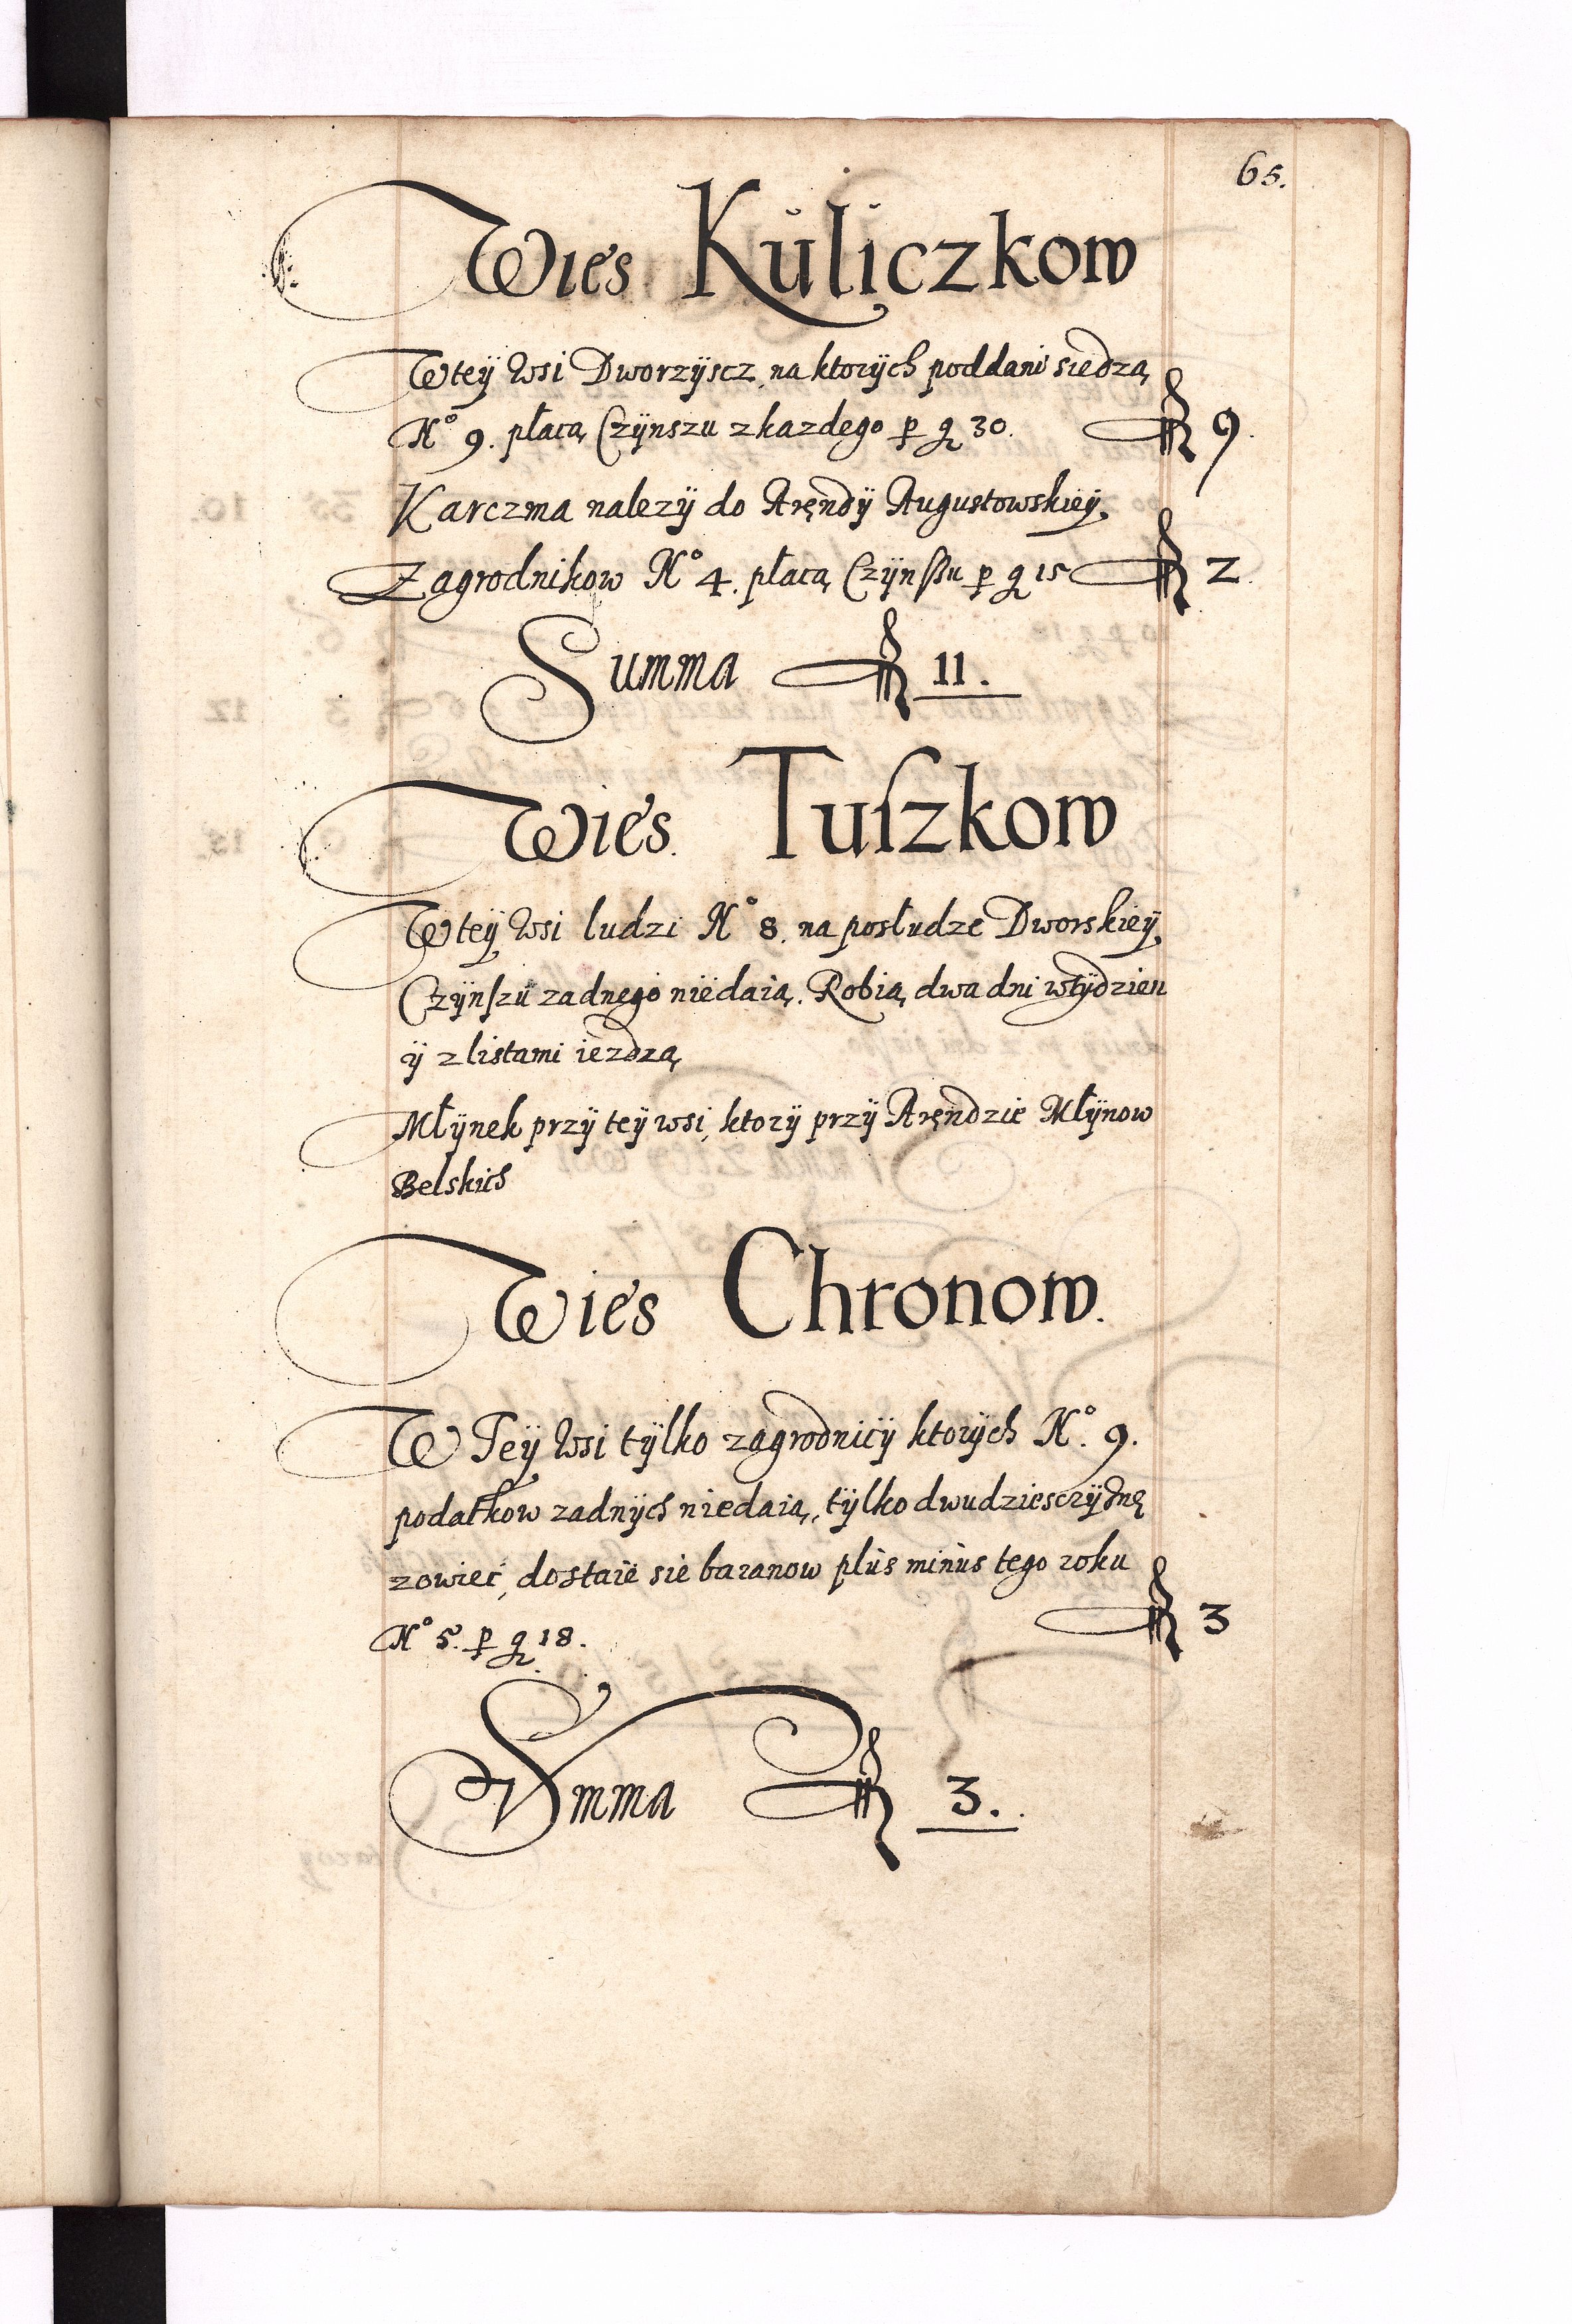 65.
Wies Kuliczkow
W tey Wsi Dworzyscz, na ktorych poddani siedzą
N° 9. płacą Czynszu z kazdego p g 30. fl 9.
Karczma nalezy do Aręndy Augustowskiey.
Zagrodnikow N° 4. płacą Czynszu p g 15 fl 2.
Summa fl 11.
Wies. Tuszkow
W tey Wsi ludzi N° 8. na posłudze Dworskiey,
Czynszu zadnego niedaią. Robią dwa dni w tydzien
y z listami iezdzą
Młynek przy tey wsi, ktory przy Aręndzie Młynow
Belskich
Wies Chronow.
W Tey Wsi tylko zagrodnicy ktorych N°. 9.
podatkow zadnych niedaią, tylko dwudziesczyznę
zowiec, dostaie sie baranow plus minus tego roku
N° 5. p g 18. fl 3
Summa fl 3.